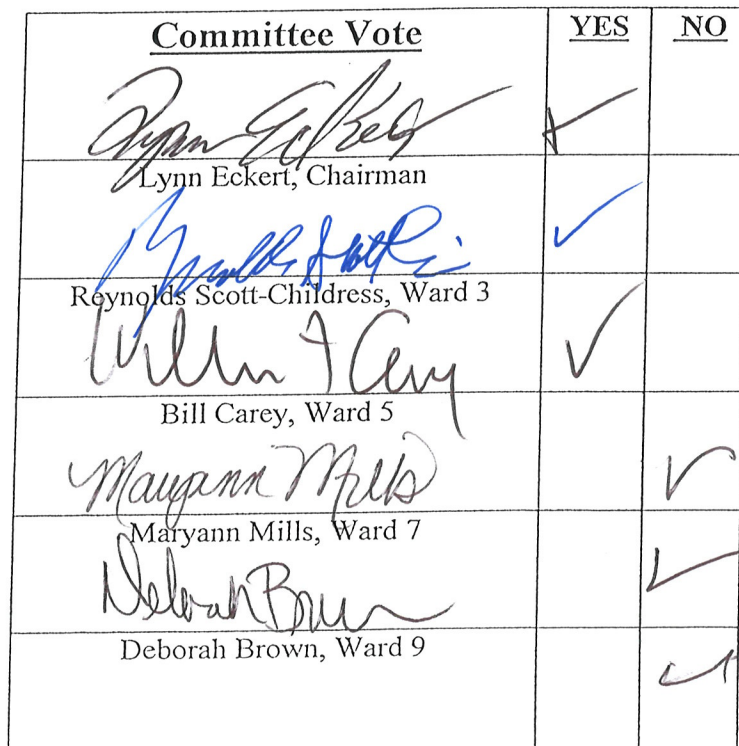 Committee Vote YES NO
Lynn Eckert
Lynn Eckert, Chairman
Reynolds Scott-Chi
Reynolds Scott-Childress, Ward 3
William F Carey
Bill Carey, Ward 5
Maryann Mills
Maryann Mills, Ward 7
Deborah Brown
Deborah Brown, Ward 9